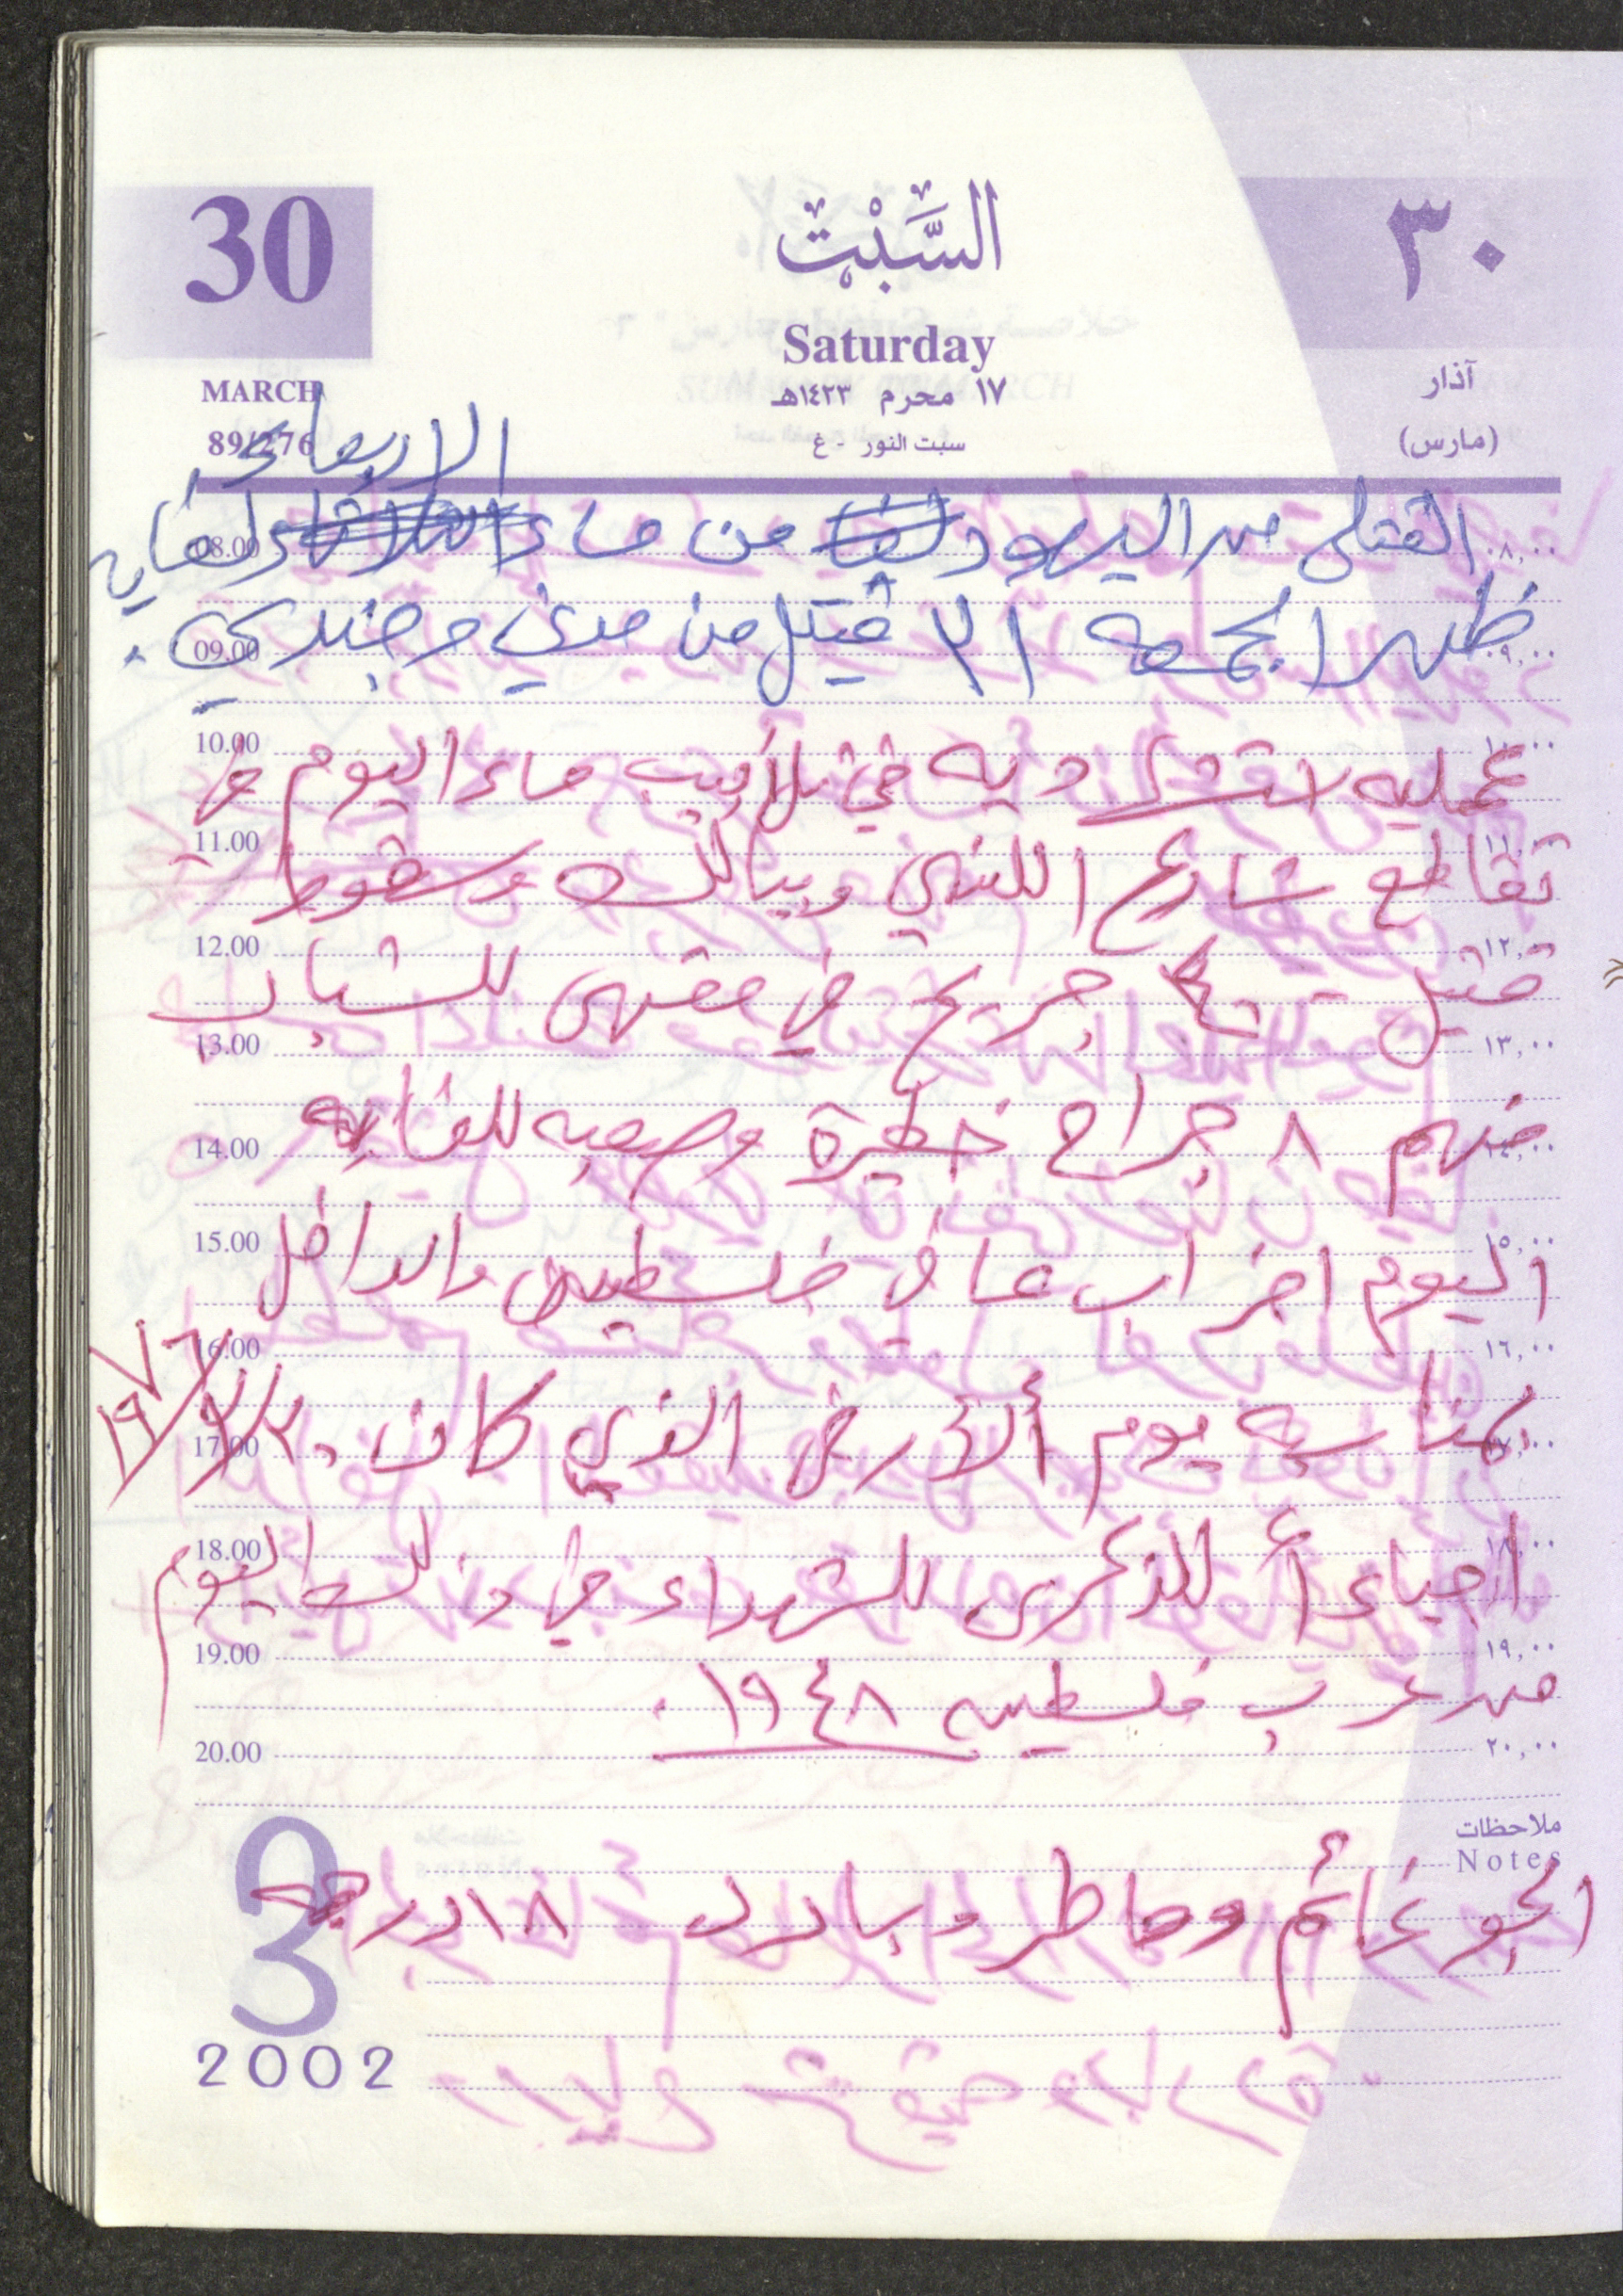 30
السَّبْت
٣٠
Saturday
MARCH
١٧ محرم ١٤٢٣هـ
آذار
89/276
سبت النور - غ
(مارس)
الاربعاء
القتلى من اليهود من مساء لغاية
08.00 ٠٨,٠٠
ظهر الجمعه ٣١ قتيل من مدني وجندي.
09.00 ٠٩,٠٠
10.00 ١٠,٠٠
عمليه استشهاديه في تل أبيب مساء اليوم في
11.00 ١١,٠٠
تقاطع شارع اللنبي وبيالك وسقوط
12.00 ١٢,٠٠
قتيل جريح في مقهى للشباب
13.00 ١٣,٠٠
منهم ٨ جراح خطيرة وصعبه للغايه
14.00 ١٤,٠٠
15.00 ١٥,٠٠
اليوم اضراب عام في فلسطين والداخل
16.00 ١٦,٠٠
بمناسبه يوم الأرض الذي كان ٣/٣٠/١٩٧٦
17.00 ١٧,٠٠
18.00 ١٨,٠٠
احياءً للذكرى للشهداء في ذلك اليوم
19.00 ١٩,٠٠
من عرب فلسطين ١٩٤٨.
20.00 ٢٠,٠٠
ملاحظات
Notes
الجو غائم وماطر وبارد ١٨ درجه
3
2002